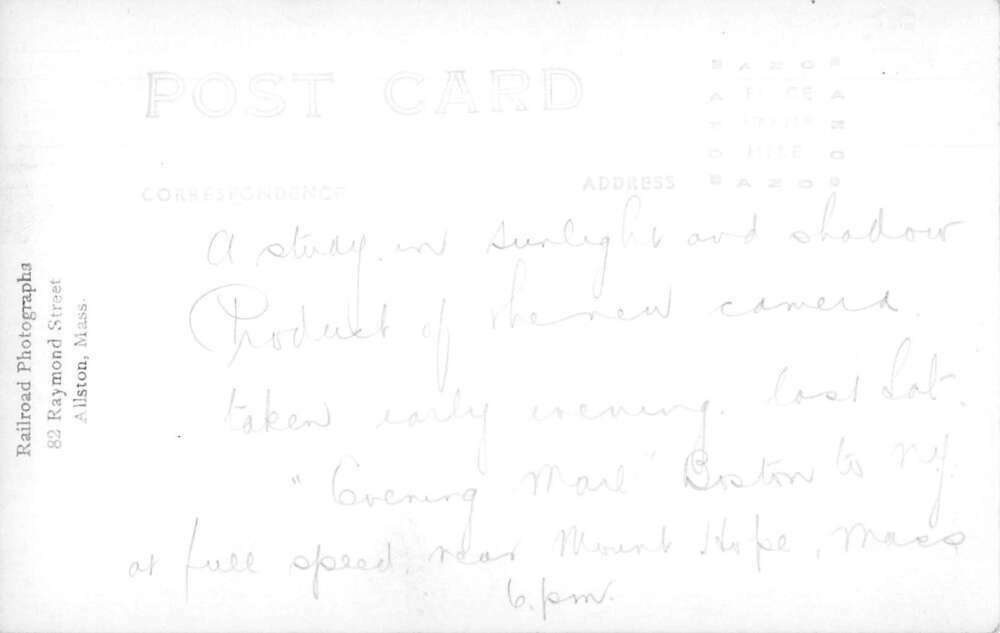 POST CARD
AZO AZO
PLACE
STAMP
HERE
CORRESPONDENCE
ADDRESS
Railroad Photographs
82 Raymond Street
Allston, Mass.
A study in sunlight and shadow
Product of the new camera.
taken early evening. last Sat.
"Evening Mail" Boston to NY.
at full speed, near Mount Hope, Mass
6. pm.